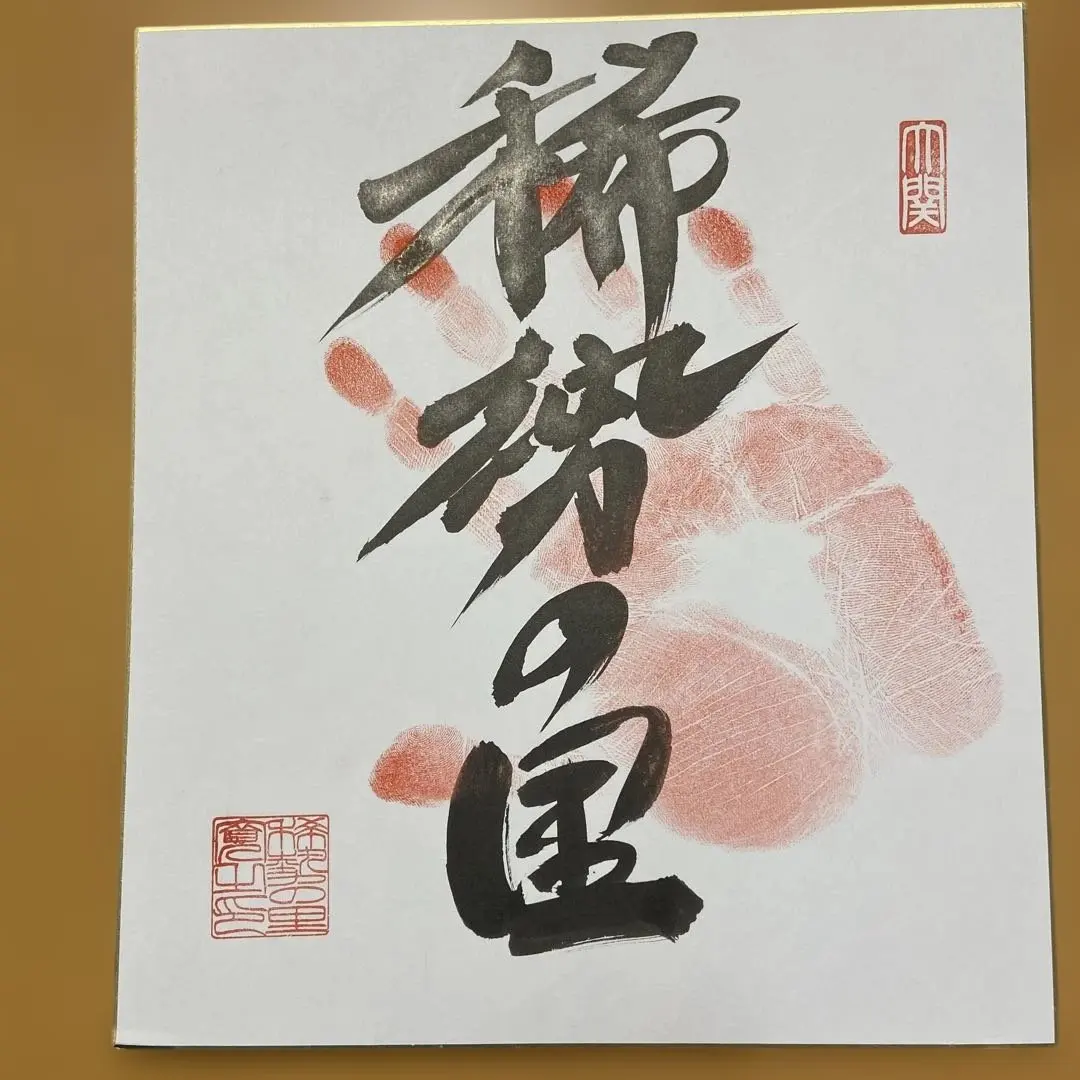 大関
稀勢の里
稀勢の里
寛之印